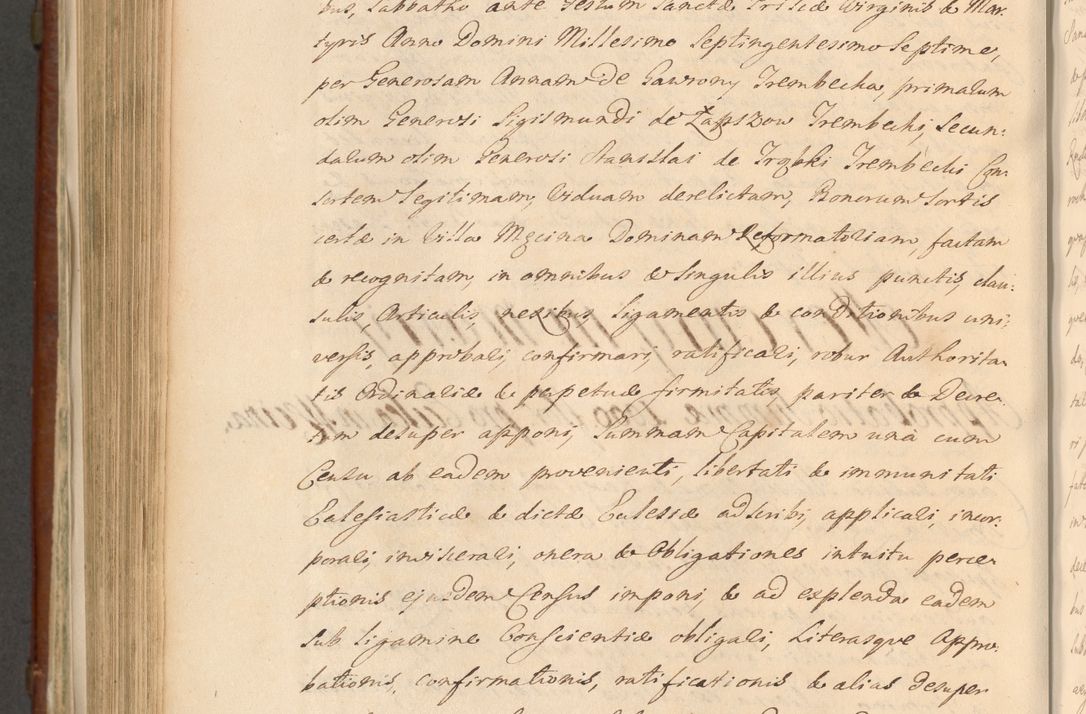 bus, Sabbatho ante Festum Sanctæ Priscæ Virginis & Mar:
tyris Anno Domini Millesimo Septingentesimo Septimo,
per Generosam Annam de Gawrony Trembecka, primatum
olim Generosi Sigismundi de Trembecki, Secun:
datum olim Generosi Stanislai de Trembecki Con:
sortem Legitimam, Viduam derelictam, Bonorum Sortis
certæ in Villa Męcina Dominam Reformatoriam, factam
& recognitam, in omnibus & Singulis illius punctis, clau:
sulis, Articulis, nexibus, ligamentis & conditionibus uni:
versis, approbari, confirmari, ratificari, robur Authorita:
tis Ordinariæ & perpetuæ firmitatis pariter & Decre:
tum desuper apponi, Summam Capitalem una cum
Censu ab eadem provenienti, libertati & immunitati
Ecclesiasticæ & dictæ Ecclesiæ adscribi, applicari, incor:
porari, inviscerari, onera & Obligationes intuitu perce:
ptionis ejusdem Census imponi, & ad explenda eadem
sub ligamine Conscientiæ obligari, Literasque Appro:
bationis, confirmationis, ratificationis & alias desuper